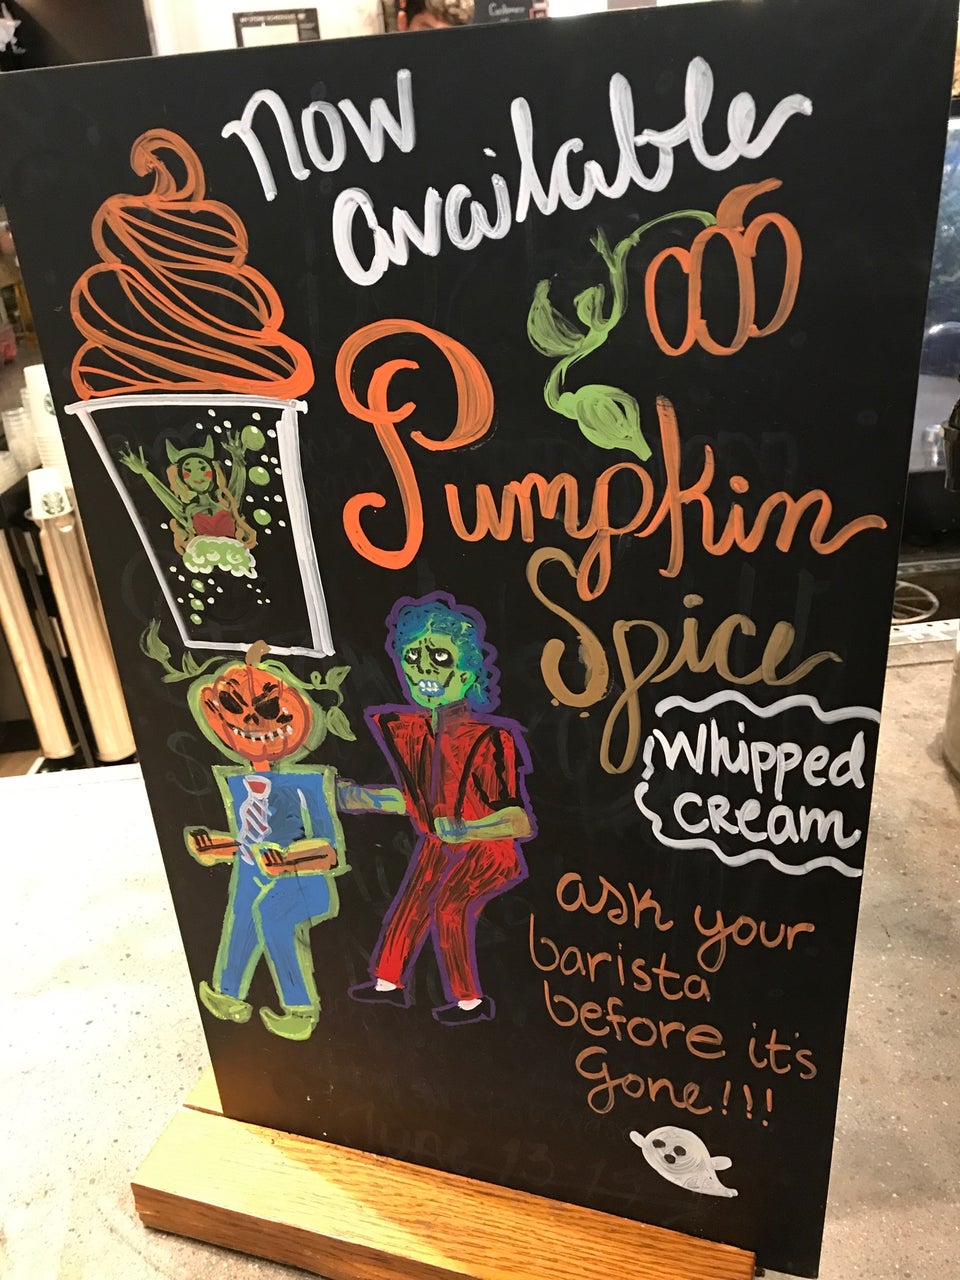 now
available
Pumpkin
Spice
Whipped
CReam
ask your
barista
before it's
gone!!!